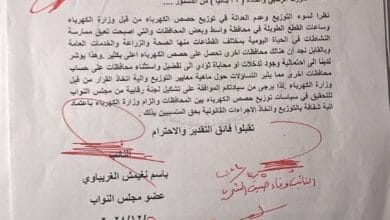 نظرا لسوء التوزيع وعدم العدالة في توزيع حصص الكهرباء من قبل وزارة الكهرباء
وساعات القطع الطويلة في محافظة واسط وبعض المحافظات والتي اصبحت تعيق ممارسة
النشاطات في الحياة اليومية بمختلف القطاعات منها الصحة والزراعة والخدمات العامة
وبالمقابل نجد ان هنالك محافظات اخرى تحصل على حصص الكهرباء اعلى بكثير. وهذا يوشر
لدينا الى احتمالية وجود تدخلات او محاباة تؤدي الى تفضيل واستثناء محافظات على حساب
محافظات اخرى مما يثير التساؤلات حول ماهية معايير التوزيع والية اتخاذ القرار من قبل
الوزارة. لذا يرجى من سيادتكم الموافقة على تشكيل لجنة رقابية من مجلس النواب
للتحقيق في سياسات توزيع حصص الكهرباء بين المحافظات والزام وزارة الكهرباء باعتماد
الية شفافة بالتوزيع واتخاذ الاجراءات القانونية بحق المتسببين بذلك
تقبلوا فائق التقدير والاحترام
النائب
باسم نغيمش الغريباوي
عضو مجلس النواب